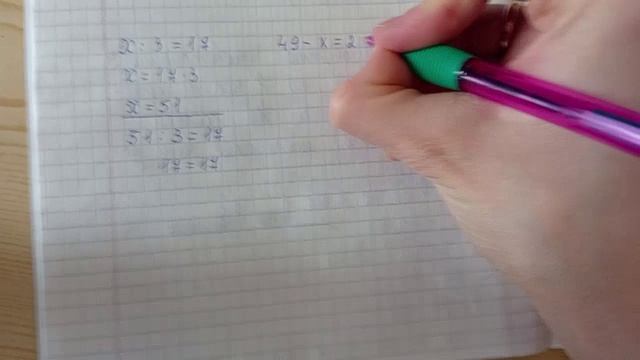 x : 3 = 17
x = 17 · 3
x = 51
51 : 3 = 17
17 = 17
49 - x = 2